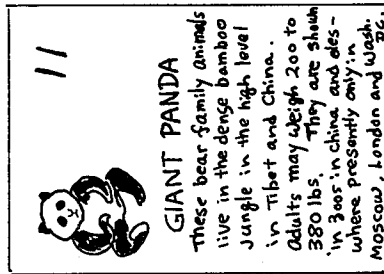 11
GIANT PANDA
These bear family animals
live in the dense bamboo
jungle in the high level
in Tibet and China.
Adults may weigh 200 to
380 lbs. They are shown
in zoos in china and els-
where presently only in
Moscow, London and Wash.
DC.